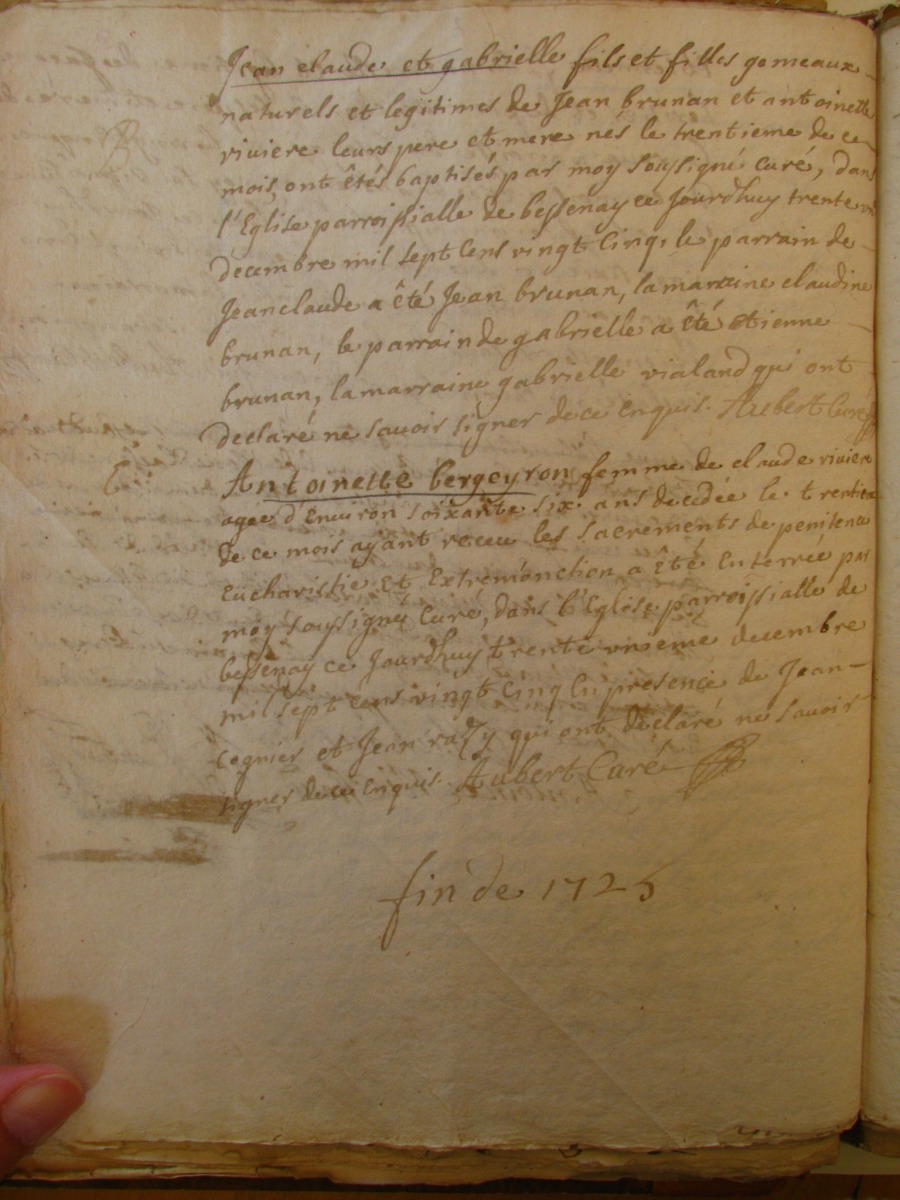 Jean claude et gabrielle fils et filles gemeaux
naturels et legitimes de Jean brunan et antoinette
B
riviere leurs pere et mere nés le trentieme de ce
mois, ont êtés baptisés par moy soussigné curé, dans
l'Eglise parroissialle de bessenay ce Jourdhuy trente un
decembre mil sept cens vingt cinq, le parrain de
Jeanclaude a êté Jean brunan, la maraine claudine
brunan, le parrain de gabrielle a êté êtienne
brunan, la marraine gabrielle vialand qui ont
declaré ne savoir signer de ce enquis. Aubert Curé
Antoinette bergeyron femme de claude riviere
agée d'Environ soixante six ans decedée le trentieme
de ce mois ayant receu les sacrements de penitence
Eucharistie et Extremonction a êté Enterrée par
moy soussigné Curé, dans l'Eglise parroissialle de
bessenay ce Jourdhuy trente unieme decembre
mil sept cens vingt Cinq En presence de Jean
cognier et Jean razy qui ont declaré ne savoir
signer de ce enquis. Aubert Curé
fin de 1725